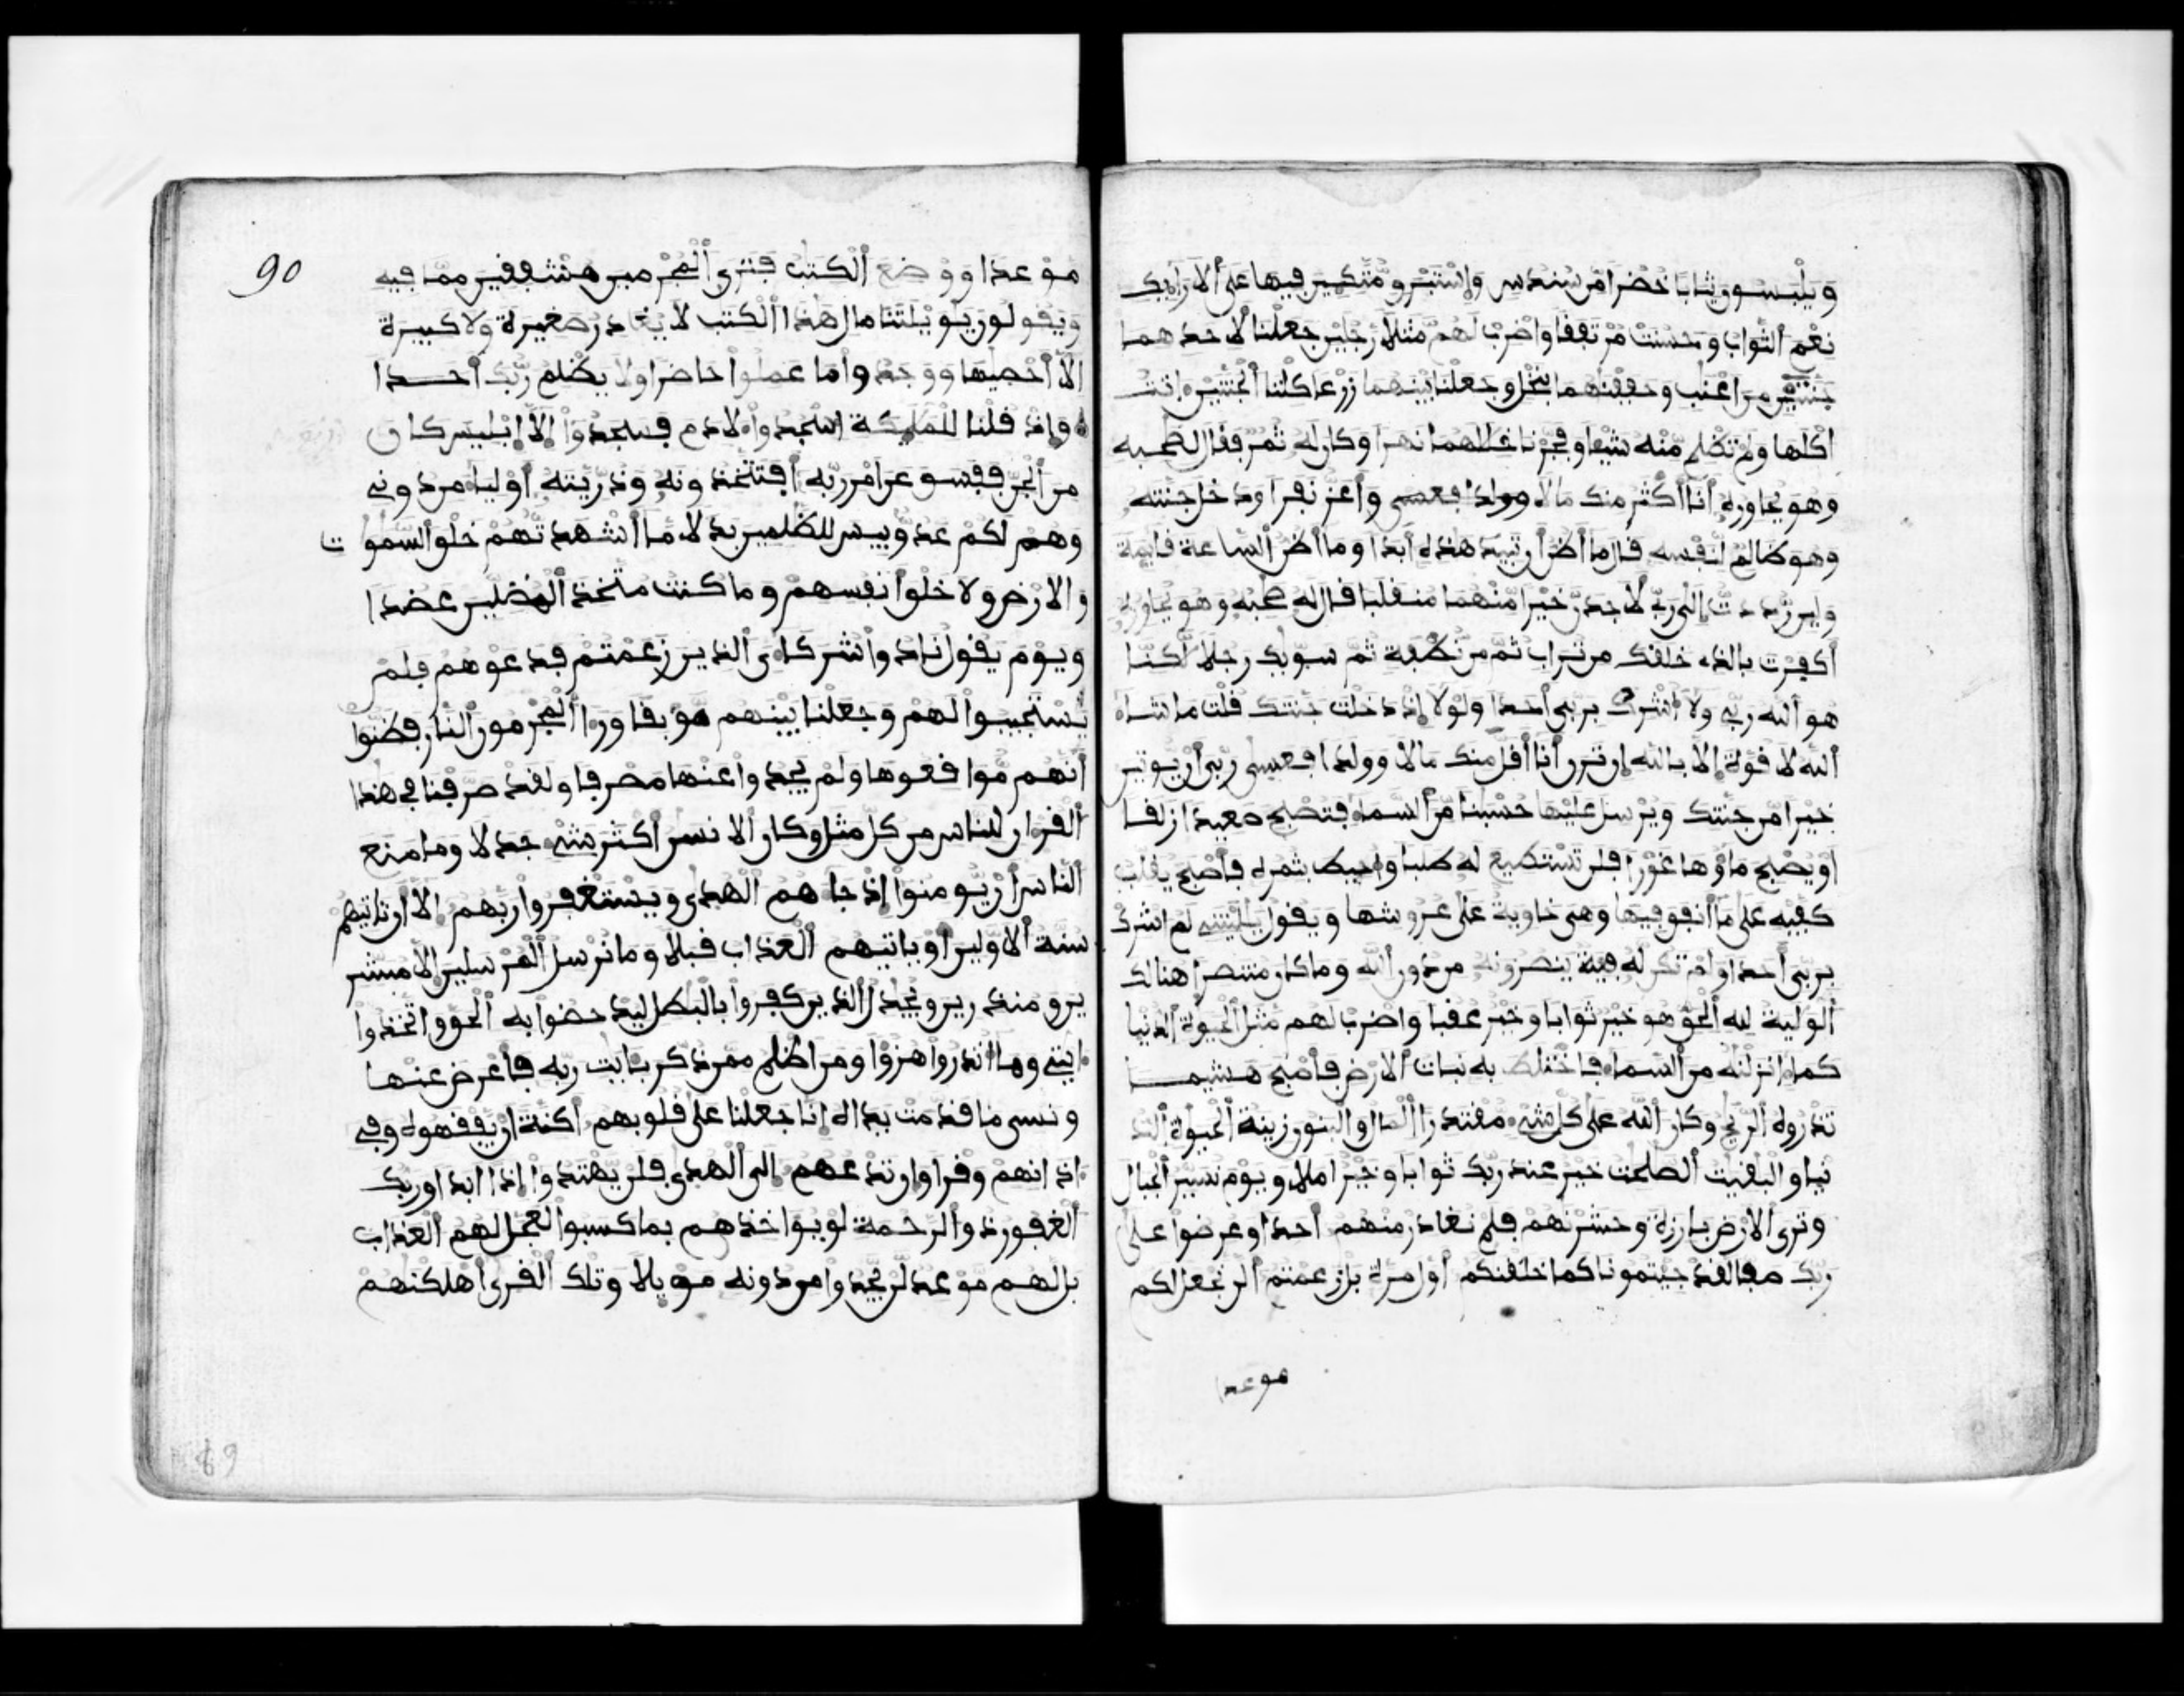 ويلبسون ثيابا خضرا من سندس واستبرق متكين فيها على الارايك
نعم الثواب وحسنت مرتفقا واضرب لهم مثلا رجلين جعلنا لاحدهما
جنتين من اعنب وحففنهما بنخل وجعلنا بينهما زرعا كلتا الجنتين اتت
اكلها ولم تظلم منه شيا وفجرنا خللهما نهرا وكان له ثمر فقال لصحبه
وهو يحاوره أنا أكثر منك مالا وأعز نفرا ودخل جنته
وهو ظالم لنفسه قال ما أظن أن تبيد هذه أبدا وما أظن الساعة قايمة
ولين رددت إلى ربي لأجدن خيرا منهما منقلبا قال له صحبه وهو يحاوره
أكفرت بالذي خلقك من تراب ثم من نطفة ثم سويك رجلا لكنا
هو الله ربي ولا أشرك بربي أحدا ولولا إذ دخلت جنتك قلت ما شاء
الله لا قوة إلا بالله إن ترن أنا أقل منك مالا وولدا فعسى ربي أن يوتين
خيرا من جنتك ويرسل عليها حسبنا من السماء فتصبح صعيدا زلقا
او يصبح ماؤها غورا فلن تستطيع له طلبا واحيط بثمره فأصبح يقلب
كفيه على ما أنفق فيها وهي خاوية على عروشها ويقول يليتني لم اشرك
بربي أحدا ولم تكن له فية ينصرونه من دون الله وما كان منتصرا هنالك
الولية لله الحق هو خير ثوابا وخير عقبا واضرب لهم مثل الحيوة الدنيا
كماء انزلنه من السماء فاختلط به نبات الارض فأصبح هشيما
تذروه الريح وكان الله على كل شيء مقتدرا المال والبنون زينة الحيوة الد
نيا والبقيت الصلحت خير عند ربك ثوابا وخير املا ويوم نسير الجبال
وترى الارض بارزة وحشرنهم فلم نغادر منهم احدا وعرضوا على
ربك صفا لقد جيتمونا كما خلقنكم أول مرة بل زعمتم ألن نجعل لكم
موعدا
90
موعدا ووضع الكتب فترى المجرمين مشفقين مما فيه
ويقولون يويلتنا مال هذا الكتب لا يغادر صغيرة ولا كبيرة
الا أحصيها ووجدوا ما عملوا حاضرا ولا يظلم ربك أحدا
وإذ قلنا للمليكة اسجدوا لادم فسجدوا إلا إبليس كان
من الجن ففسق عن امر ربه أفتتخذونه وذريته أوليا من دوني
وهم لكم عدو بيس للظلمين بدلا ما أشهدتهم خلق السموت
والارض ولا خلق أنفسهم وما كنت متخذ المضلين عضدا
ويوم يقول نادوا شركاءي الذين زعمتم فدعوهم فلم
يستجيبوا لهم وجعلنا بينهم موبقا ورا المجرمون النار فظنوا
أنهم مواقعوها ولم يجدوا عنها مصرفا ولقد صرفنا في هذا
القران للناس من كل مثل وكان الانسن أكثر شيء جدلا وما منع
الناس أن يومنوا إذ جاهم الهدى ويستغفروا ربهم الا أن تاتيهم
سنة الاولين أو ياتيهم العذاب قبلا وما نرسل المرسلين إلا مبشر
ين ومنذرين ويجدل الذين كفروا بالبطل ليدحضوا به الحق واتخذوا
ايتي وما انذروا هزوا ومن اظلم ممن ذكر بايت ربه فأعرض عنها
ونسي ما قدمت يداه انا جعلنا على قلوبهم أكنة ان يفقهوه وفي
اذانهم وقرا وان تدعهم إلى الهدى فلن يهتدوا إذا ابدا وربك
الغفور ذو الرحمة لو يواخذهم بما كسبوا لعجل لهم العذاب
بل لهم موعد لن يجدوا من دونه مويلا وتلك القرى أهلكنهم
89